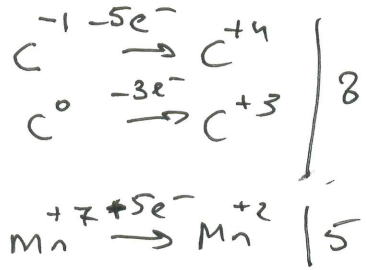 C⁻¹ –5e⁻ → C⁺⁴
C⁰ –3e⁻ → C⁺³ | 8
Mn⁺⁷ +5e⁻ → Mn⁺² | 5